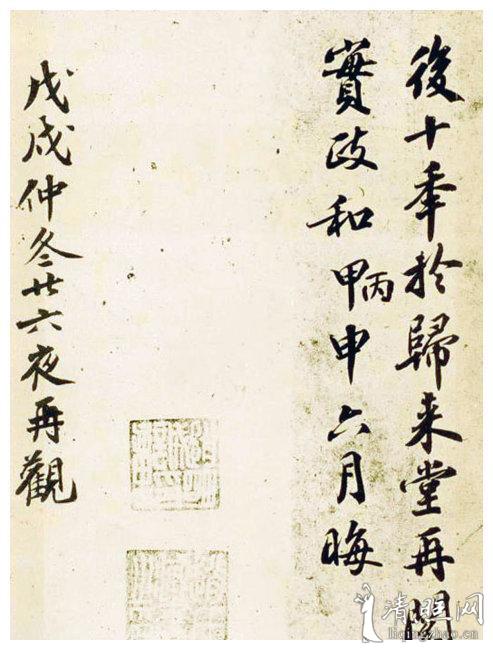 後十秊於歸来堂再閱
實政和甲丙申六月晦
戊戌仲冬廿六夜再觀
清照网
liqingzhao.cn